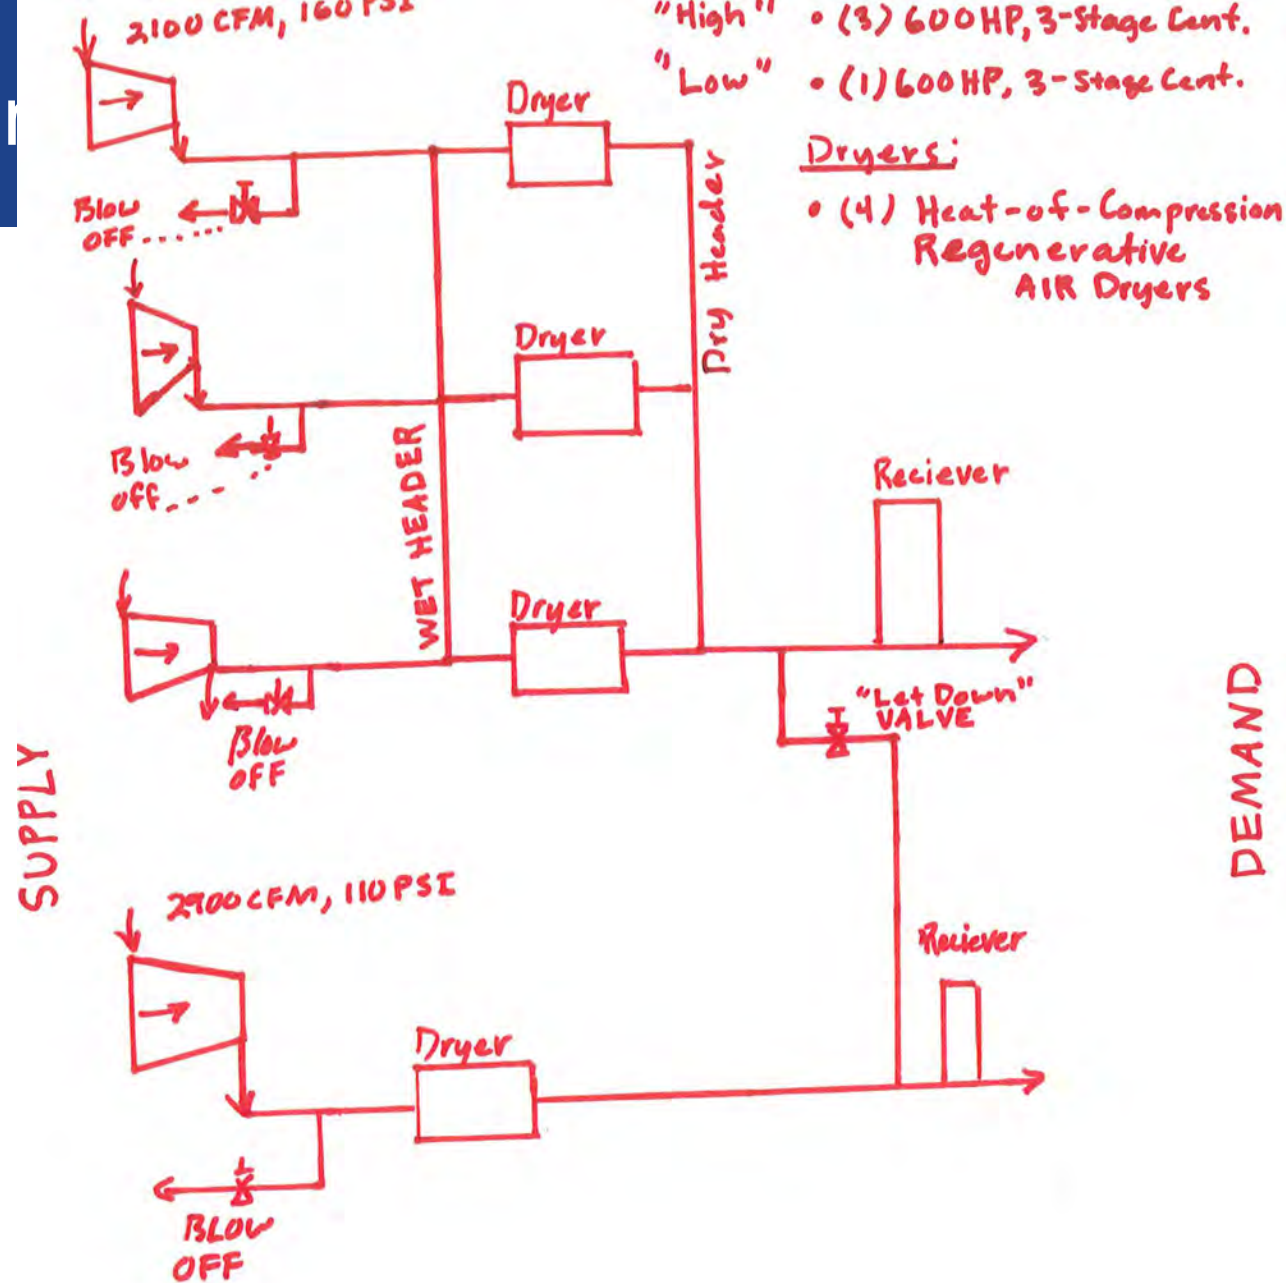 2100 CFM, 160 PSI
"High" • (3) 600HP, 3-Stage Cent.
"Low" • (1) 600 HP, 3-Stage Cent.
Dryers:
• (4) Heat-of-Compression
Regenerative
AIR Dryers
Dryer
Blow
OFF
Dry Header
Dryer
Blow
off
WET HEADER
Reciever
Dryer
Blow
OFF
"Let Down"
VALVE
SUPPLY
DEMAND
2900 CFM, 110 PSI
Reciever
Dryer
BLOW
OFF